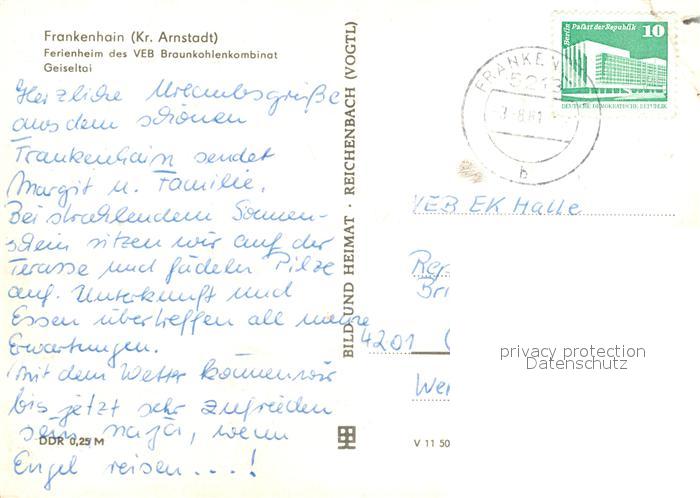 Frankenhain (Kr. Arnstadt)
Ferienheim des VEB Braunkohlenkombinat
Geiseltal
Herzliche Urlaubsgrüße
aus dem schönen
Frankenhain sendet
Margit u. Familie.
Bei strahlendem Sonnen-
schein sitzen wir auf der
Terasse und fädeln Pilze
auf. Unterkunft und
Essen übertreffen all meine
Erwartungen.
Mit dem Wetter können wir
bis jetzt sehr zufrieden
sein, naja, wenn
Engel reisen . . . !
DDR 0,25 M
BILD UND HEIMAT · REICHENBACH (VOGTL)
V 11 50
Berlin Palast der Republik 10
DEUTSCHE DEMOKRATISCHE REPUBLIK
b
VEB EK Halle
Bri
4201
Wer
privacy protection
Datenschutz